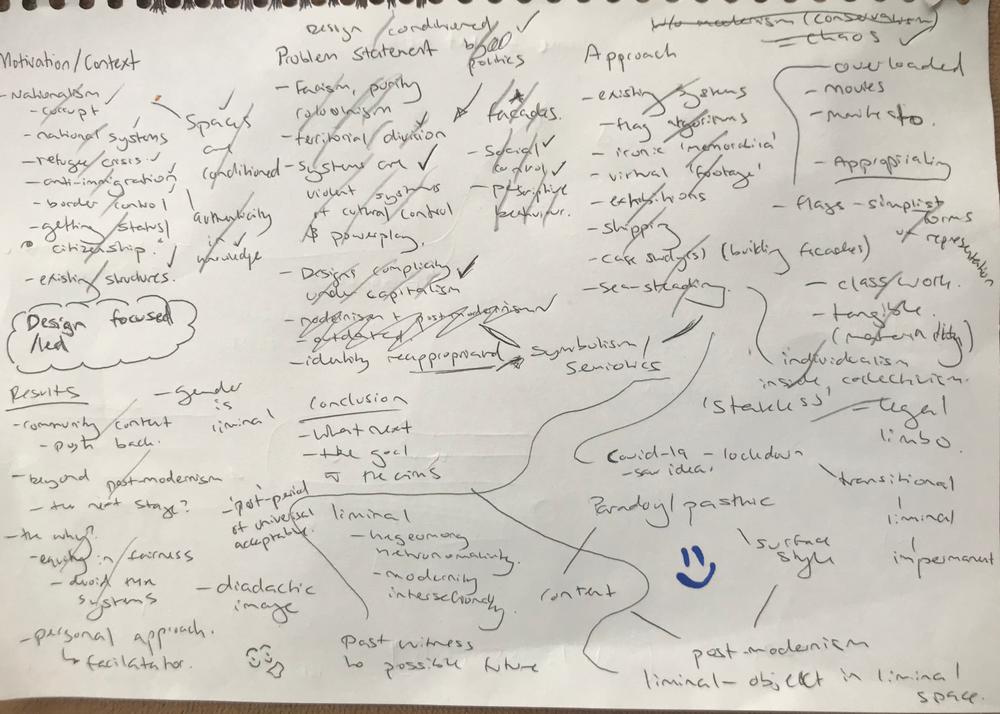 Motivation/Context
- Nationalism
- corrupt
- national systems
- refugee crisis
- anti-immigration
- border control
- getting status/
citizenship.
- existing structures.
Spaces
are
conditioned
authenticity
in
knowledge
Design focused
/led
Design conditioned
by
politics
Problem statement
- Facism, purity
colonolism
- territorial division
- systems are
violent systems
of cutural control
& powerplay.
- Designs complicity
under capitalism
- modernism + post-modernism
- outdated
- identity reappropriard
facades.
- social
control
- prescriptive
behaviour.
Symbolism/
Semiotics
Approach
- existing systems
- flag algorithms
- ironic 'memorabilia'
- virtual 'footage'
- exhibitions
- shipping
- case study(s) (building facades)
- sea-steading
w/o modernism (conservatism)
= chaos
- overloaded
- movies
- manifesto.
- Appropriating
- flags - simplist
forms
of representation
- class/work.
- tangible.
individualism
inside, collectivism.
'Stateless' - legal
limbo
transitional
liminal
impermanent
Results
- community content
- push back.
- beyond post-modernism
- the next stage?
- the why?
- equity in fairness
- avoid the
systems
- personal approach.
facilatator.
- gender
is
liminal
- 'post-period
of universal
acceptable.
- diadactic
image
Conclusion
- what next
- the goal
the aims
liminal
- hegeomony
- modernity
intersectionality.
Past witness
to possible future
Covid-19 - lockdown
Parady/pasthic
content
surface
style
post-modernism
liminal - object in liminal
space.